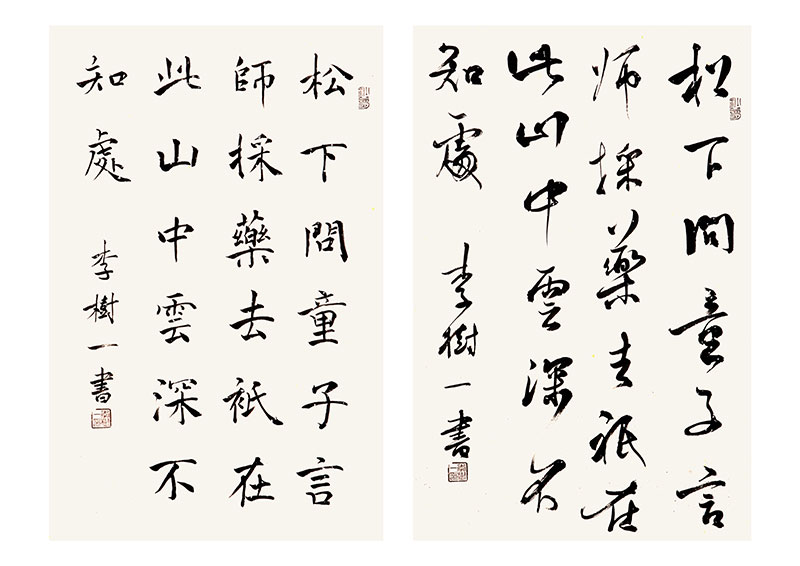 松下問童子言
師採藥去祇在
此山中雲深不
知處
李樹一書
松下問童子言
师採藥去祇在
此山中雲深不
知處
李樹一書